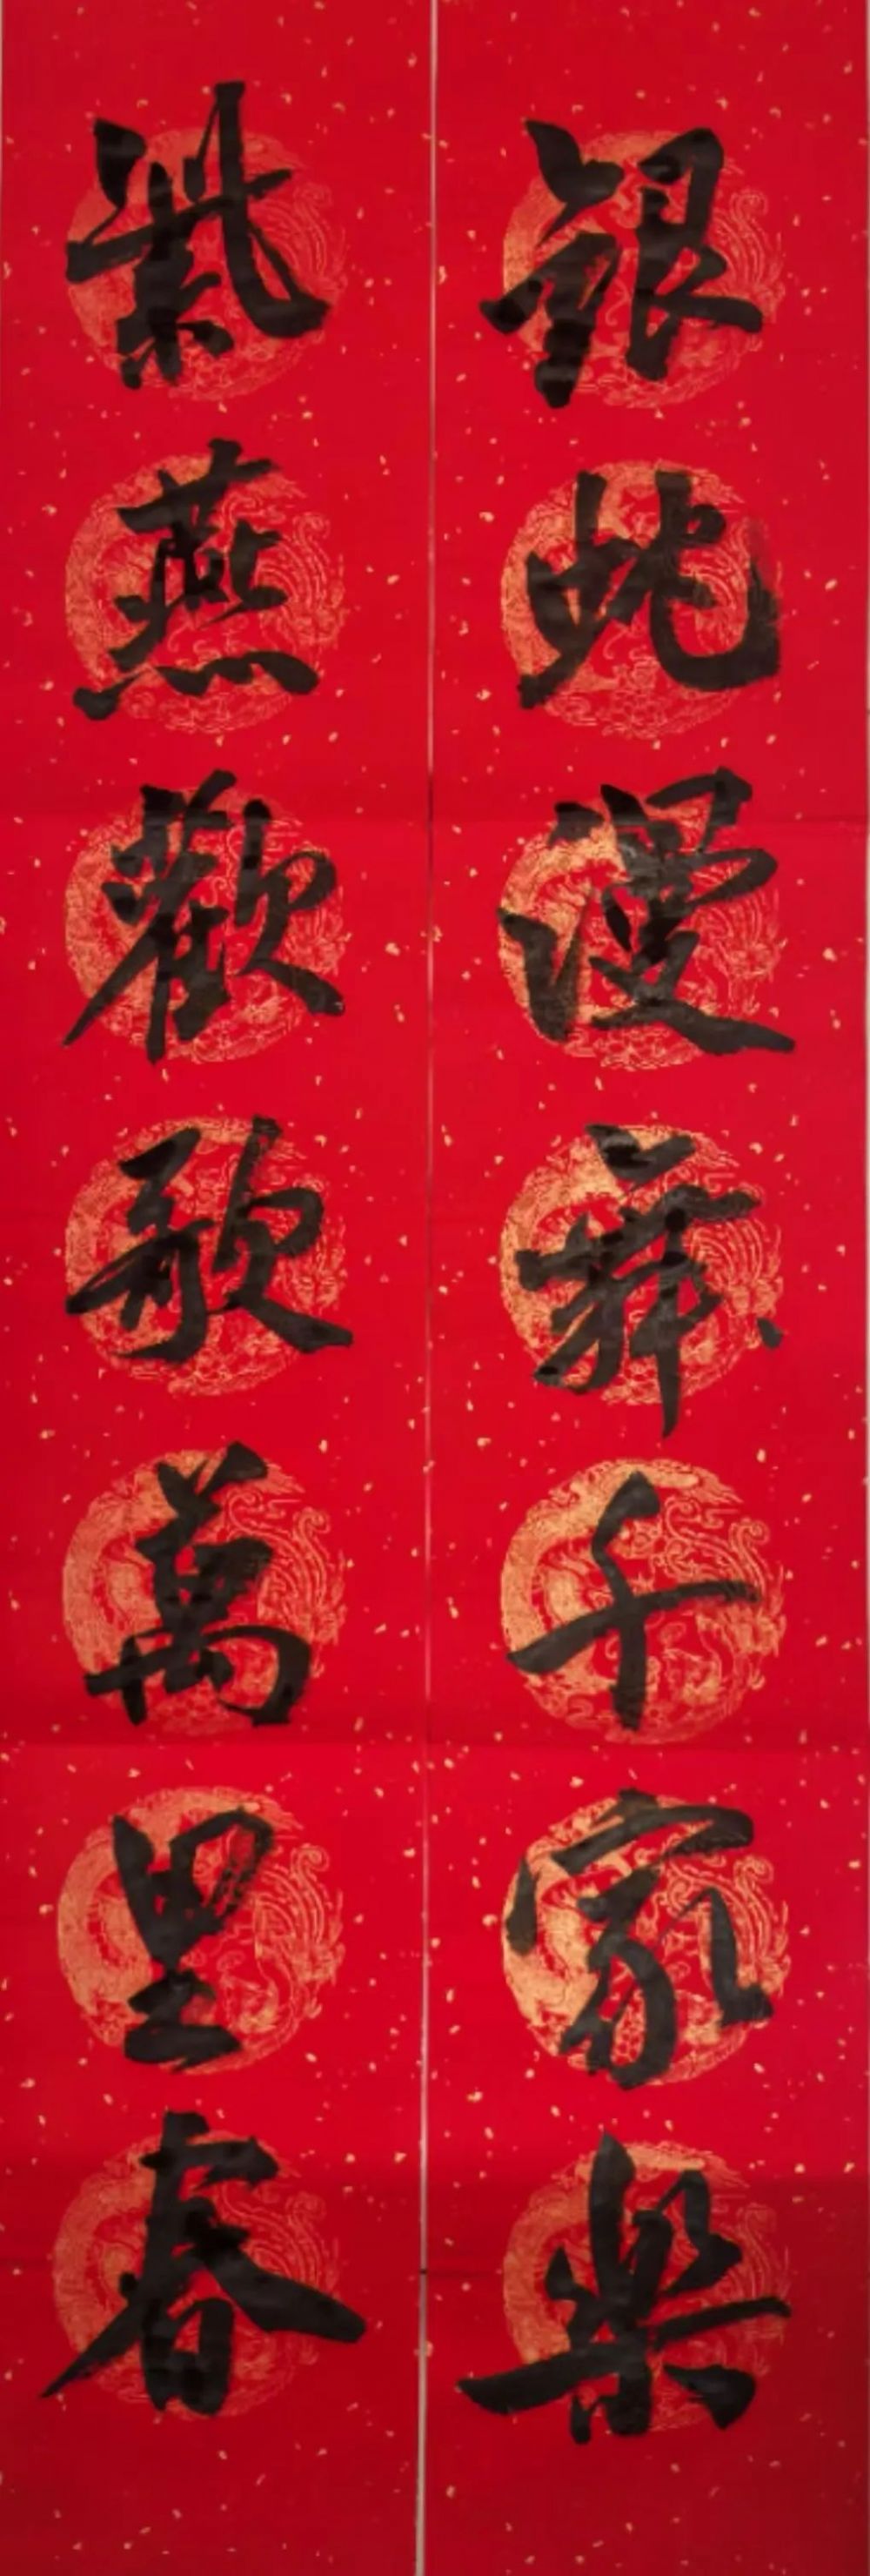 銀蛇漫舞千家樂
紫燕歡歌萬里春